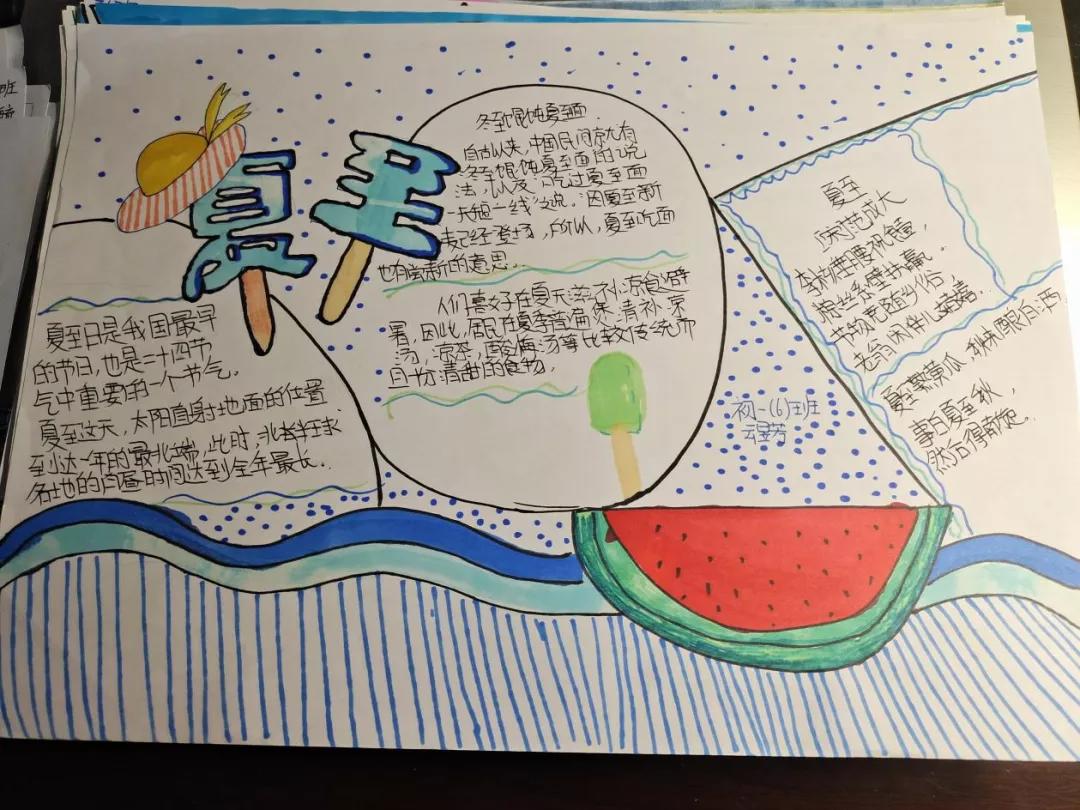 夏至
夏至日是我国最早
的节日,也是二十四节
气中重要的一个节气.
夏至这天,太阳直射地面的位置
到达一年的最北端,此时,北半球
各地的白昼时间达到全年最长.
冬至馄饨夏至面
自古以来,中国民间就有
冬至馄饨夏至面的说
法,以及吃过夏至面
一天短一线之说。因夏至新
麦已经登场,所以,夏至吃面
也有尝新的意思。
人们喜好在夏天滋补凉食避
暑,因此,居民在夏季普遍
汤,凉茶,酸梅汤等比较传统而
且十分清甜的食物,
初一(6)班
云昱芳
夏至
[宋]范成大
李核垂腰祝饐,
粽丝系臂扶羸.
节物竞随乡俗,
老翁闲伴儿嬉.
夏至
事日夏至秋,
然后得